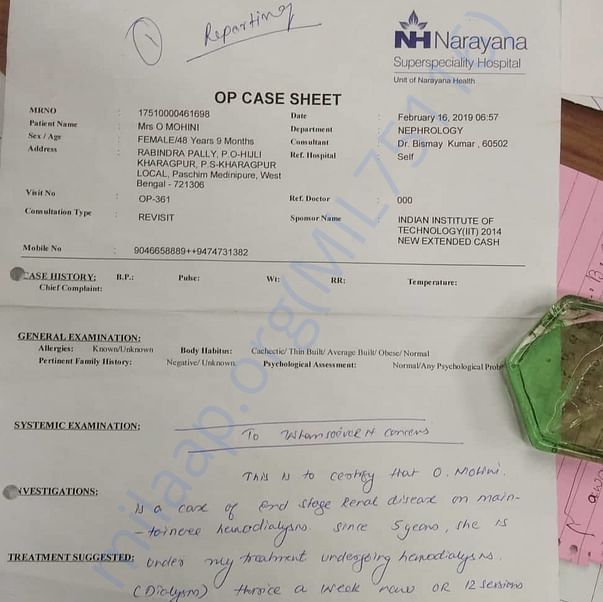 1
Reporting
NH Narayana
Superspeciality Hospital
Unit of Narayana Health
OP CASE SHEET
MRNO : 17510000461698
Date : February 16, 2019 06:57
Patient Name : Mrs O MOHINI
Department : NEPHROLOGY
Sex / Age : FEMALE/48 Years 9 Months
Consultant : Dr. Bismay Kumar , 60502
Address : RABINDRA PALLY, P.O-HIJLI
KHARAGPUR, P.S-KHARAGPUR
LOCAL, Paschim Medinipure, West
Bengal - 721306
Ref. Hospital : Self
Visit No : OP-361
Ref. Doctor : 000
Consultation Type : REVISIT
Sponsor Name : INDIAN INSTITUTE OF
TECHNOLOGY(IIT) 2014
NEW EXTENDED CASH
Mobile No : 9046658889++9474731382
CASE HISTORY: B.P.: Pulse: Wt: RR: Temperature:
Chief Complaint:
GENERAL EXAMINATION:
Allergies: Known/Unknown Body Habitus: Cachectic/ Thin Built/ Average Built/ Obese/ Normal
Pertinent Family History: Negative/ Unknown. Psychological Assessment: Normal/Any Psychological Prob
SYSTEMIC EXAMINATION:
To Whomsoever it concerns
This is to certify that O. Mohini.
NVESTIGATIONS:
is a case of end stage Renal disease on main-
-tainence hemodialysis. Since 5 years, she is
TREATMENT SUGGESTED: under my treatment undergoing hemodialysis.
(Dialysis) thrice a week now OR 12 sessions
milaap.org(MIL75416)